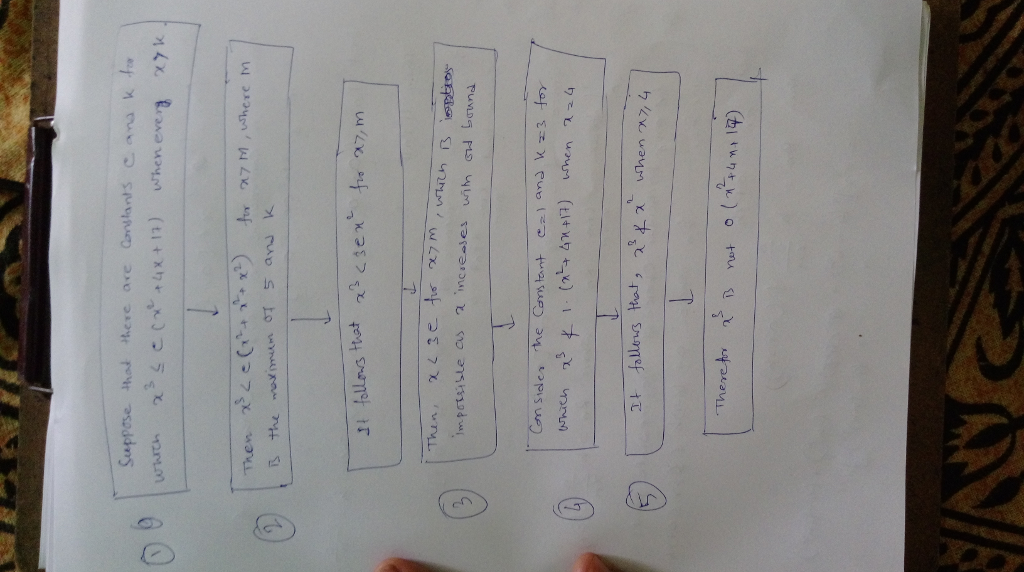 ① Suppose that there are constants c and k for
which x³ ≤ c(x²+4x+17) whenevery x>k
↓
② Then x³ < c(x²+x²+x²) for x>M, where M
is the maximum of 5 and k
↓
It follows that x³ < 3cx² for x≥m
↓
③ Then, x < 3c for x≥m, which is
impossible as x increases with bound
↓
④ Consider the constant c=1 and k=3 for
which x³ ≮ 1·(x²+4x+17) when x=4
↓
⑤ It follows that, x³ ≮ x² when x≥4
↓
Therefor x³ is not O(x²+4x+17)